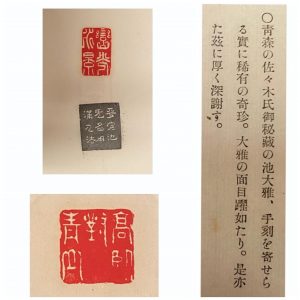 〇青森の佐々木氏御秘藏の池大雅、手刻を寄せら
る實に稀有の奇珍。大雅の面目躍如たり。是亦
た玆に厚く深謝す。
高卧
對
青山